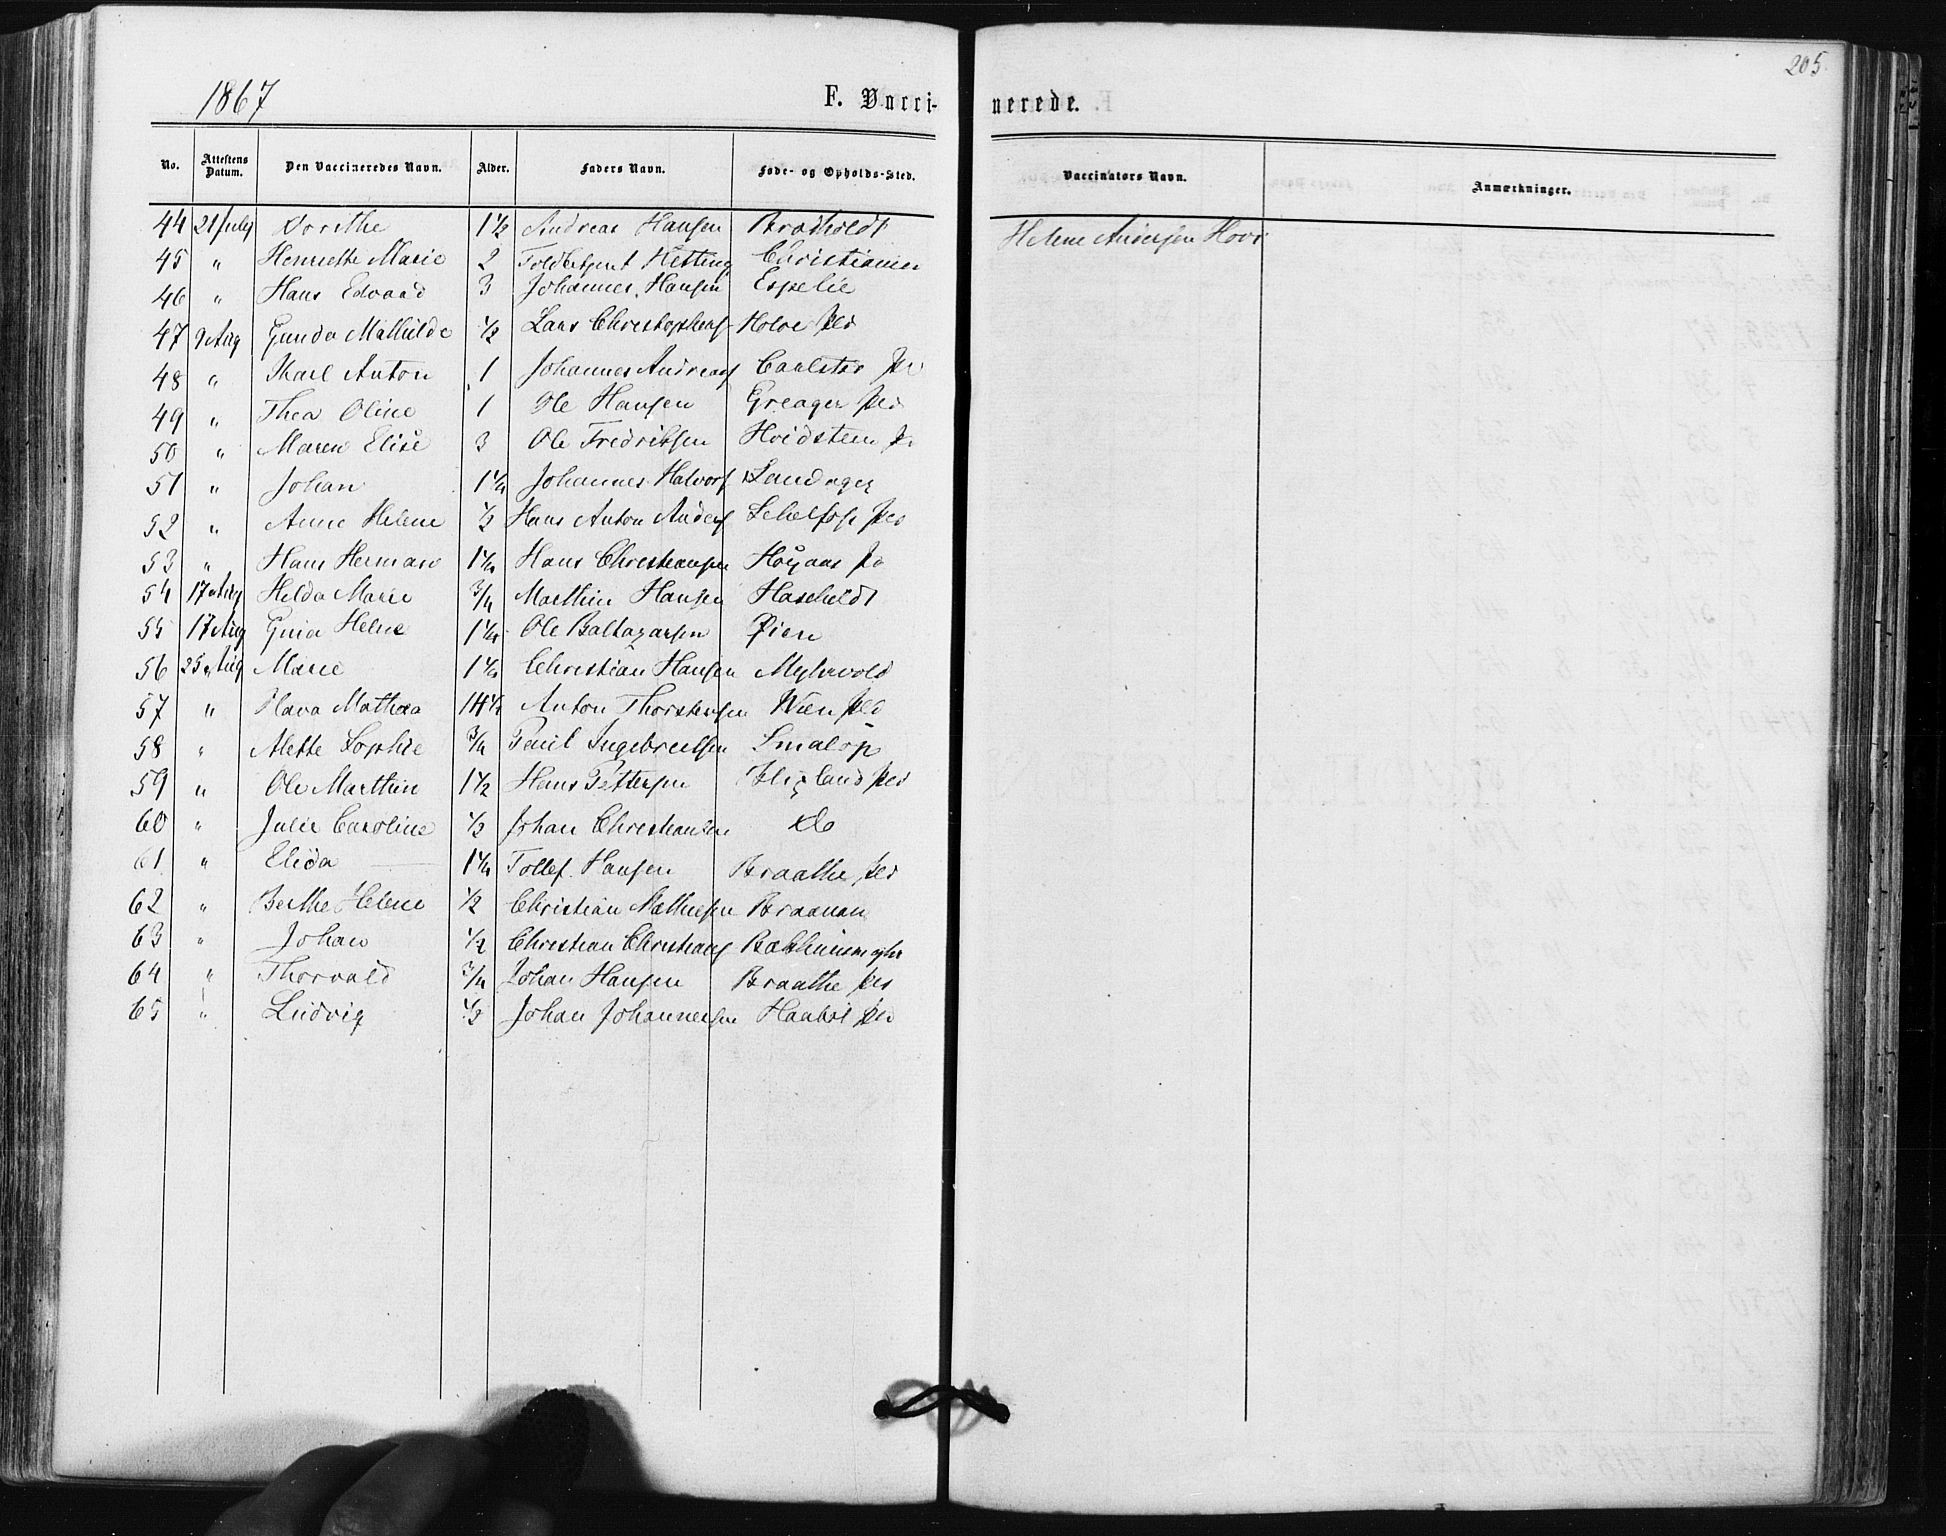 1867 F. Vacci- nerede. 205.
No. Attestens Datum. Den Vaccineredes Navn. Alder. Faders Navn. Føde- og Opholds-Sted. Vaccinators Navn. Anmærkninger.
44 21 July Dorithe 1½ Andreas Hansen Bradholdt Helene Andersen Hovi
45 " Henriette Marie 2 Toldbetjent Hetting Christiania
46 " Hans Edvard 3 Johannes Hansen Espelie
47 9 Aug Gunda Mathilde ½ Lars Christophers Holoe pld
48 " Karl Anton 1 Johannes Andreas Carlstad
49 " Thea Oline 1 Ole Hansen Greager pld
50 " Maren Elise 3 Ole Fredriksen Hvidsteen
51 " Johan 1¼ Johannes Halvors Sandager
52 " Anne Helene ½ Hans Anton Anders pld
53 " Hans Herman 1¼ Hans Christiansen Høyaas
54 17 Aug Hilda Marie ¾ Marthin Hansen Haseholdt
55 17 Aug Helene 1¼ Ole Baltazarsen Øien
56 25 Aug Marie 1¼ Christian Hansen Myhrvold
57 " Mathea Anton Thorstensen pld
58 " Alette Sophie ¾ Paul Ingebretsen Smaløp
59 " Ole Marthin 1½ Hans Pettersen pld
60 " Julie Caroline ½ Johan Christiansen do
61 " Elida 1¼ Tollef Hansen Braathe pld
62 " Berthe Helene ½ Christian Mathiesen Braanan
63 " Johan ½ Christian Christians
64 " Thorvald ¾ Johan Hansen Braathe pld
65 " Ludvig ½ Johan Johannesen pld